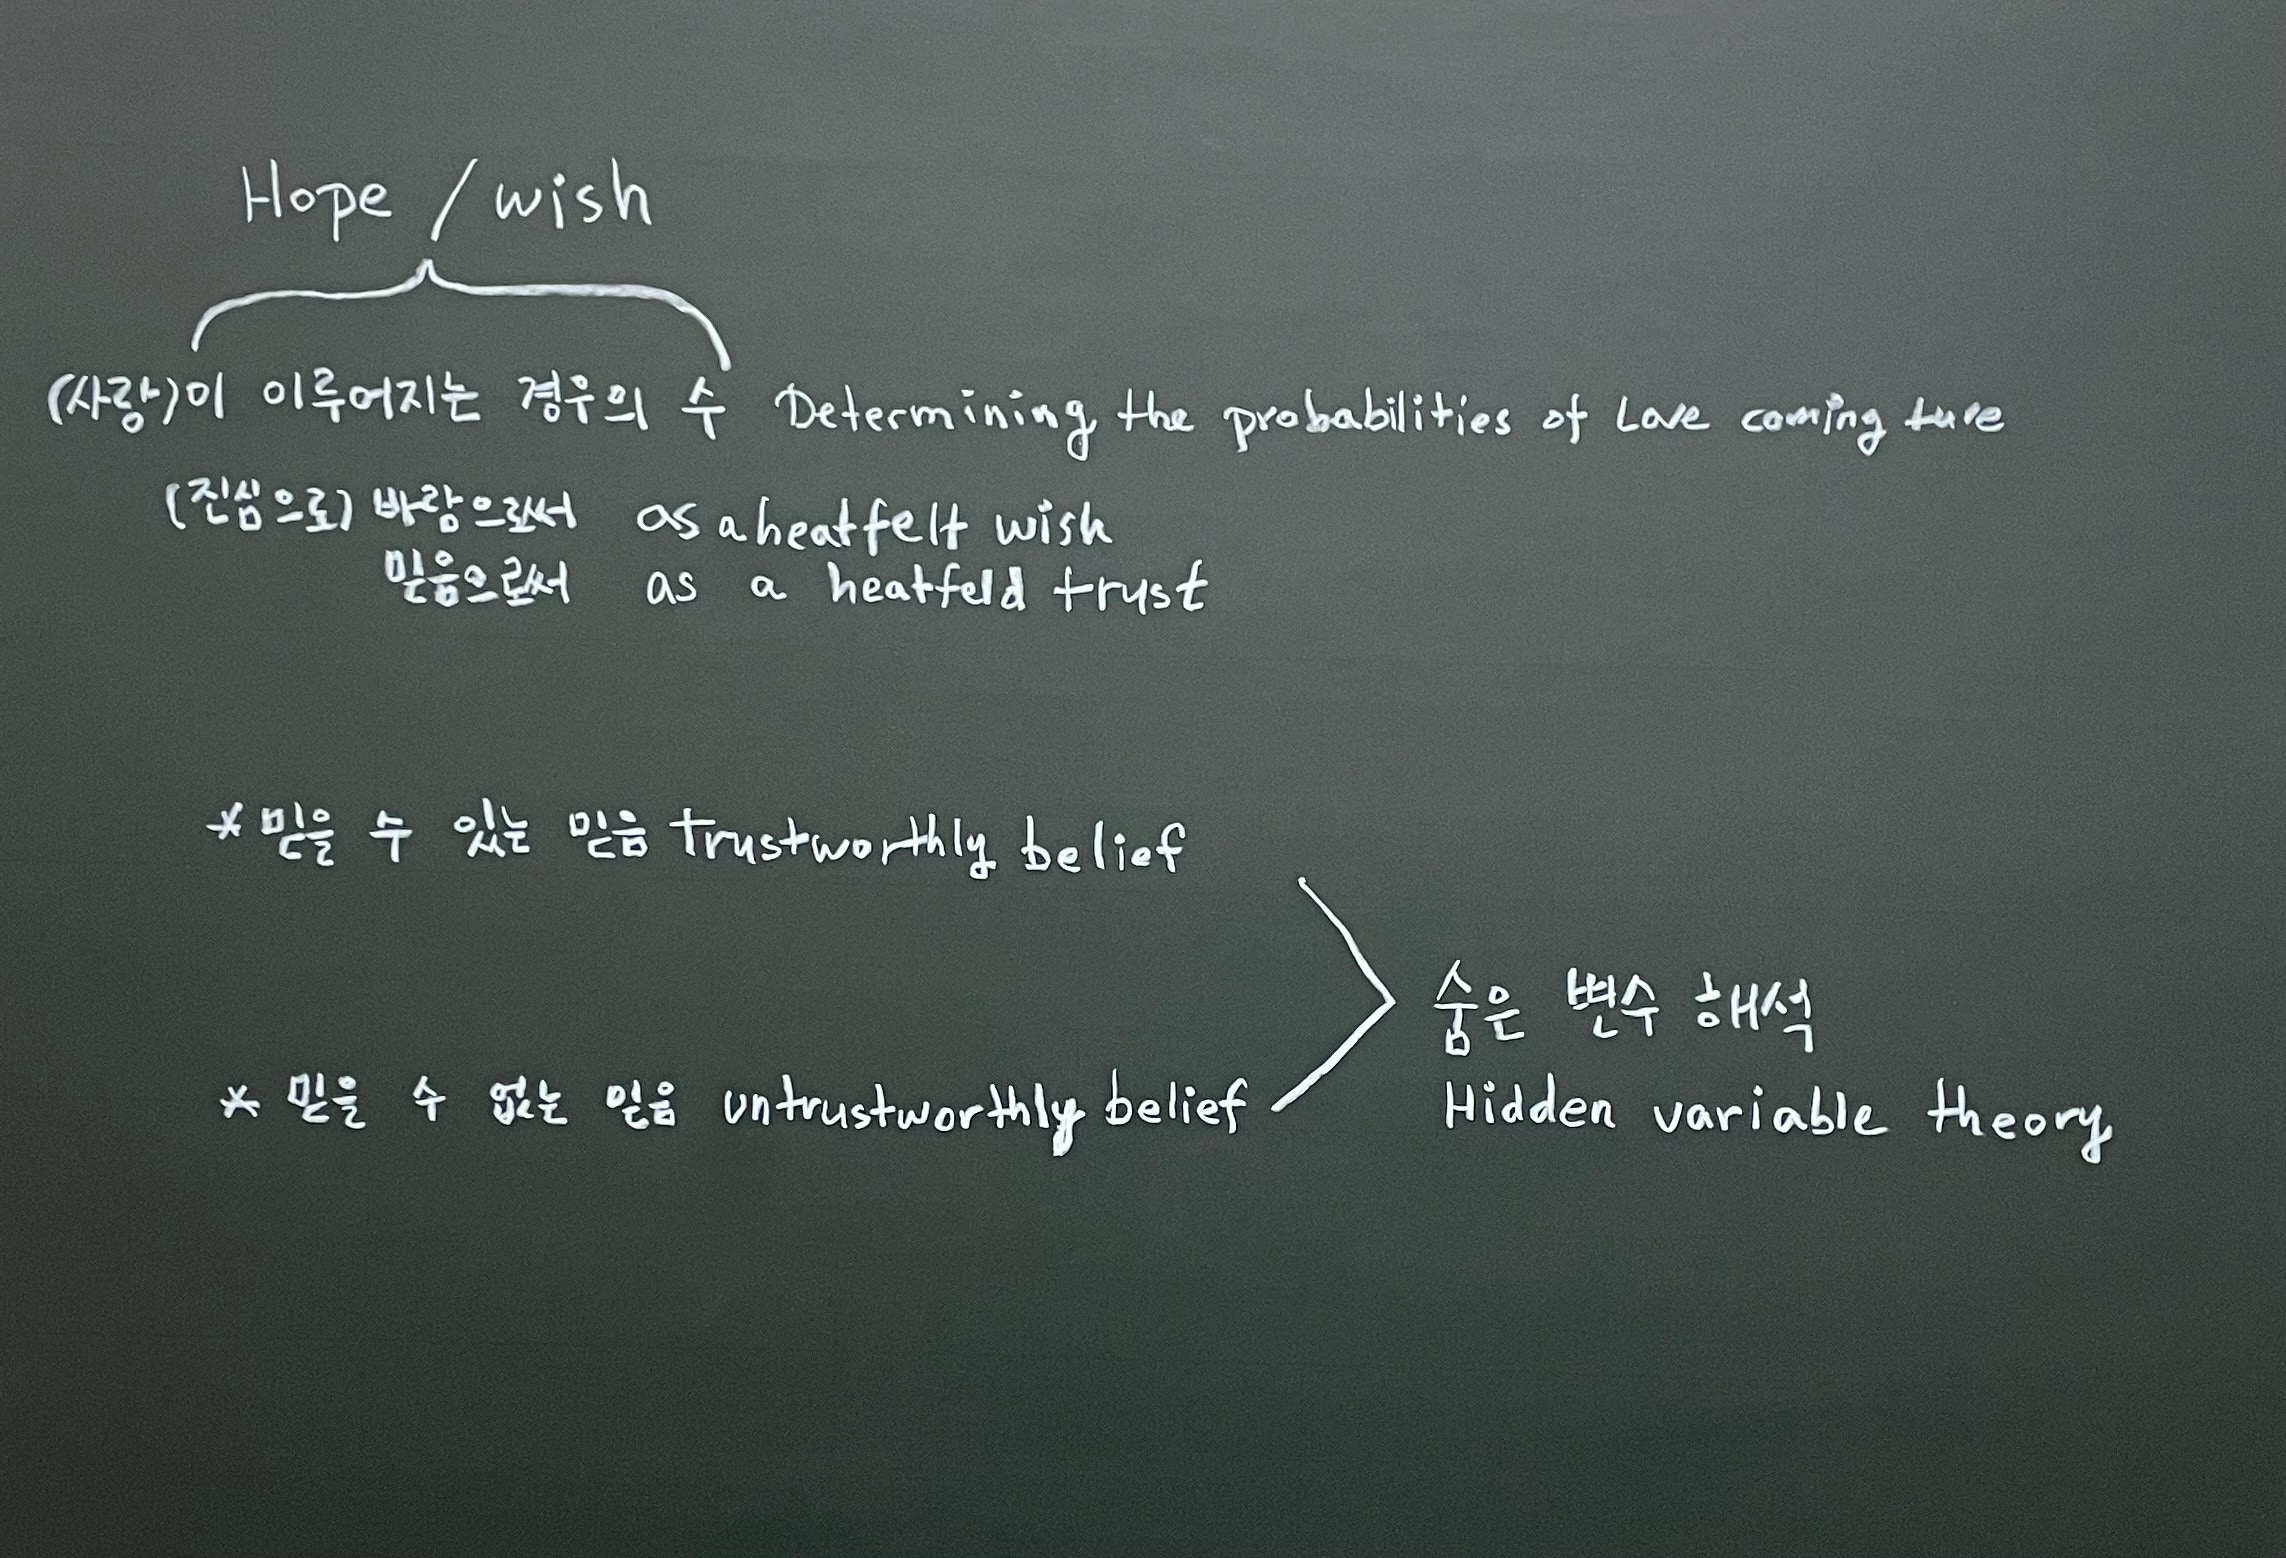 Hope / wish
(사랑)이 이루어지는 경우의 수 Determining the probabilities of Love coming ture
(진심으로)바람으로써 as a heatfelt wish
믿음으로써 as a heatfeld trust
* 믿을 수 있는 믿음 trustworthly belief
숨은 변수 해석
* 믿을 수 없는 믿음 untrustworthly belief
Hidden variable theory